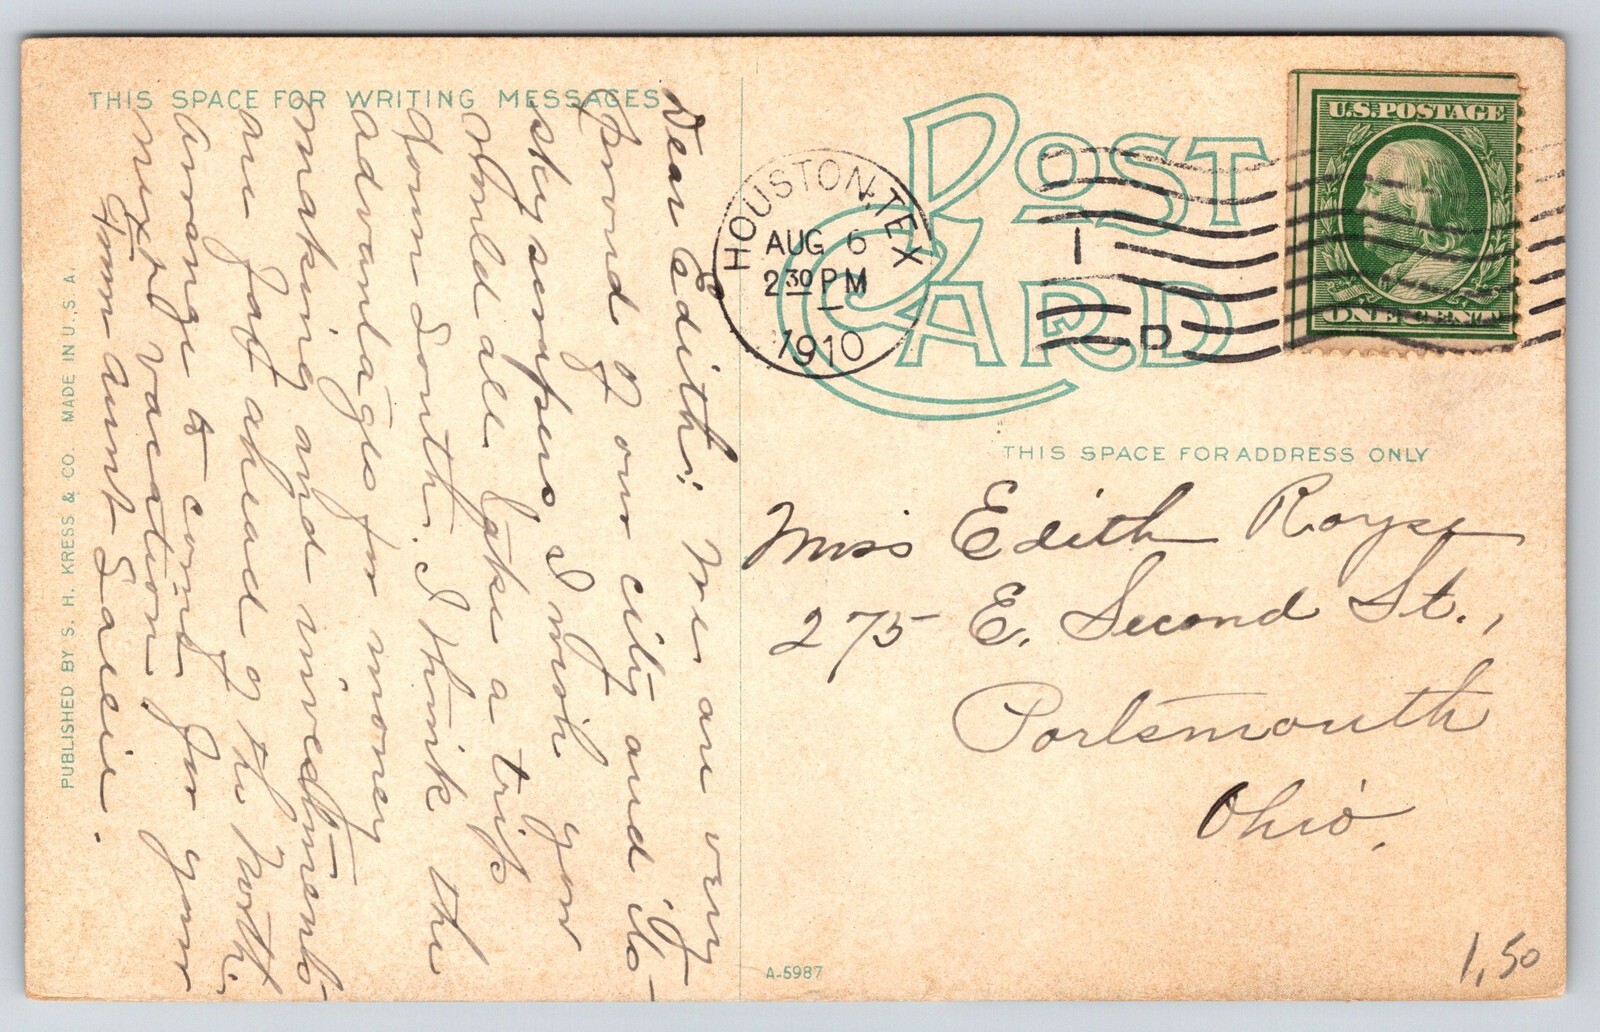 THIS SPACE FOR WRITING MESSAGES
Dear Edith: We are very
proud of our city and its
sky scrapers, I wish you
could all take a trip
down South. I think the
advantages for money
making and investments
are far ahead of the North.
Arrange to come for your
next vacation
From Aunt
PUBLISHED BY S. H. KRESS & CO. MADE IN U.S.A.
POST CARD
HOUSTON, TEX
AUG 6
2 30 PM
1910
1
D
U.S. POSTAGE
ONE CENT
THIS SPACE FOR ADDRESS ONLY
Miss Edith Royse
275 E. Second St.,
Portsmouth
Ohio.
A-5987
1,50